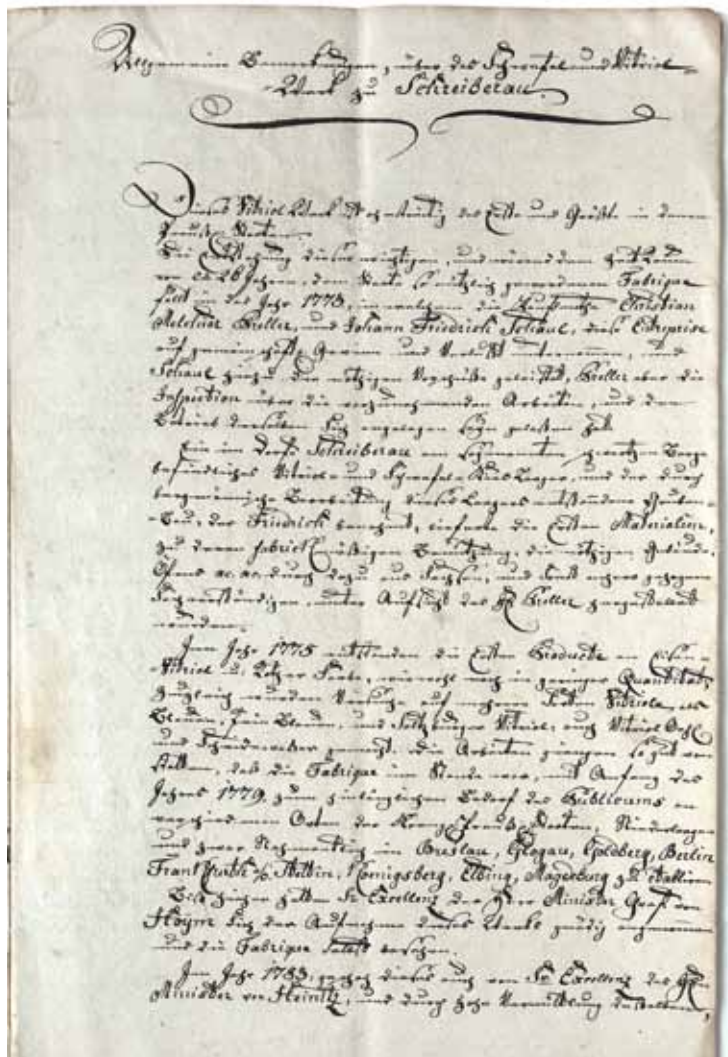 Allgemeine Bemerkungen, über das Schwefel und Vitriol-
-Werk zu Schreiberau.
Dieses Vitriol Werk ist das Erste und Größte in denen
Preuß. Staaten.
Die Entstehung dieser wichtigen, und während dem
von 26 Jahren, dem Staate so nützlich gewordenen Fabrique
fällt in das Jahr 1773, in welchem die Kaufleute Christian
Melchior Preller, und Johann Friedrich Schaul, diese Entreprise
auf gemeinschaftl. Gewinn und Verlust unternommen, und
Schaul hierzu die nöthigen Vorschüße geleistet, Preller aber die
Inspection über die vorzunehmenden Arbeiten, und den
Betrieb derselben sich angelegen seyn laßen hat.
Ein im Dorfe Schreiberau am Berge
befindliches Vitriol- und Schwefel-Kies Lager, und der durch
bergmännische Bearbeitung dieses Lagers entstandene Gruben-
-Bau, der Friedrich benahmt, lieferte die Ersten Materialien,
zu deren fabrickmäßigen Benutzung, die nöthigen Gebäude,
Ofens ac. ac. durch dazu aus Sachsen, und sonst gezogene
Sachverständigen, unter Aufsicht des Preller hergestellt
wurden.
Im Jahr 1775 entstanden die Ersten Producte an Eisen-
-Vitriol u. rother Farbe, wiewohl noch in geringer Quantitaet,
zugleich wurden Versuche auf mehrere Sorten Vitriole, als
Blauen, und Saltzburger Vitriol, auch Vitriol Oehl
und Scheidewaßer gemacht. Die Arbeiten giengen so gut von
statten, daß die Fabrique im Stande war, mit Anfang des
Jahres 1779 zum hinlänglichen Bedarf des Publicums an
verschiedenen Orten der Preuß. Staaten, Niederlagen
und zwar Nahmentlich in Breslau, Glogau, Goldberg, Berlin
Frankfurth, Stettin, Königsberg, Elbing, Magdeburg zu etabliren
hatten Sr. Excellenz der Herr Minister Graf von
Hoym sich der Aufnahme dieses Werks gnädig angenommen
und die Fabrique Selbst besehen.
Im Jahr 1783 geschah dieses auch von Sr. Excellenz des
Minister von Heinitz, und durch hohe Vermittlung desselben,